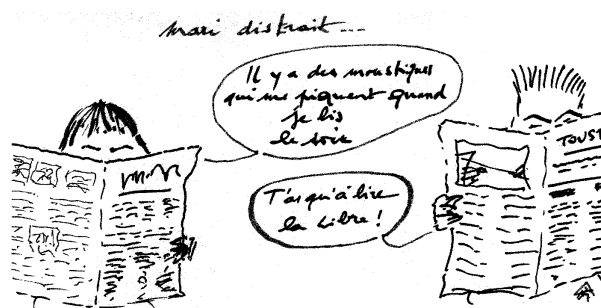 Mari distrait...
Il y a des moustiques
qui me piquent quand
je lis
le soir
T'as qu'à lire
la Libre !
TOUST